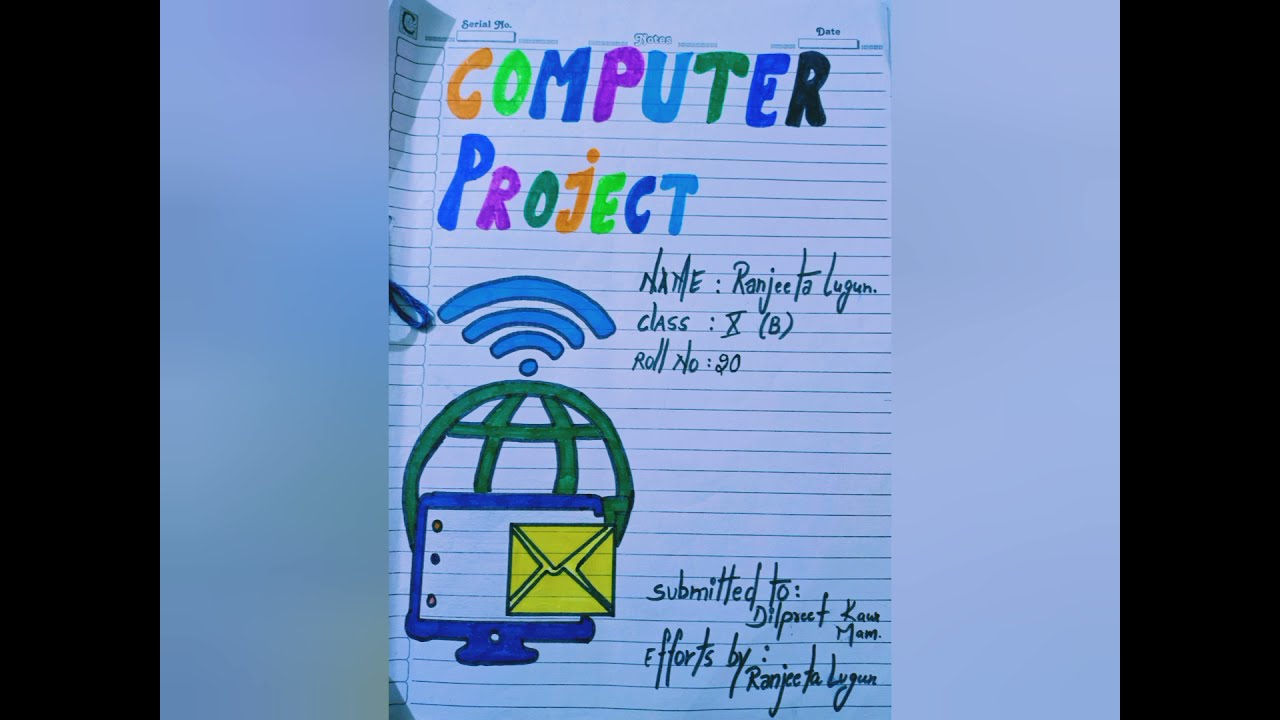 Serial No.
Notes
Date
COMPUTER
PROJECT
NAME : Ranjeeta Lugun.
CLASS : X (B)
Roll No : 20
Submitted to:
Dilpreet Kaur
Mam.
Efforts by :
Ranjeeta Lugun